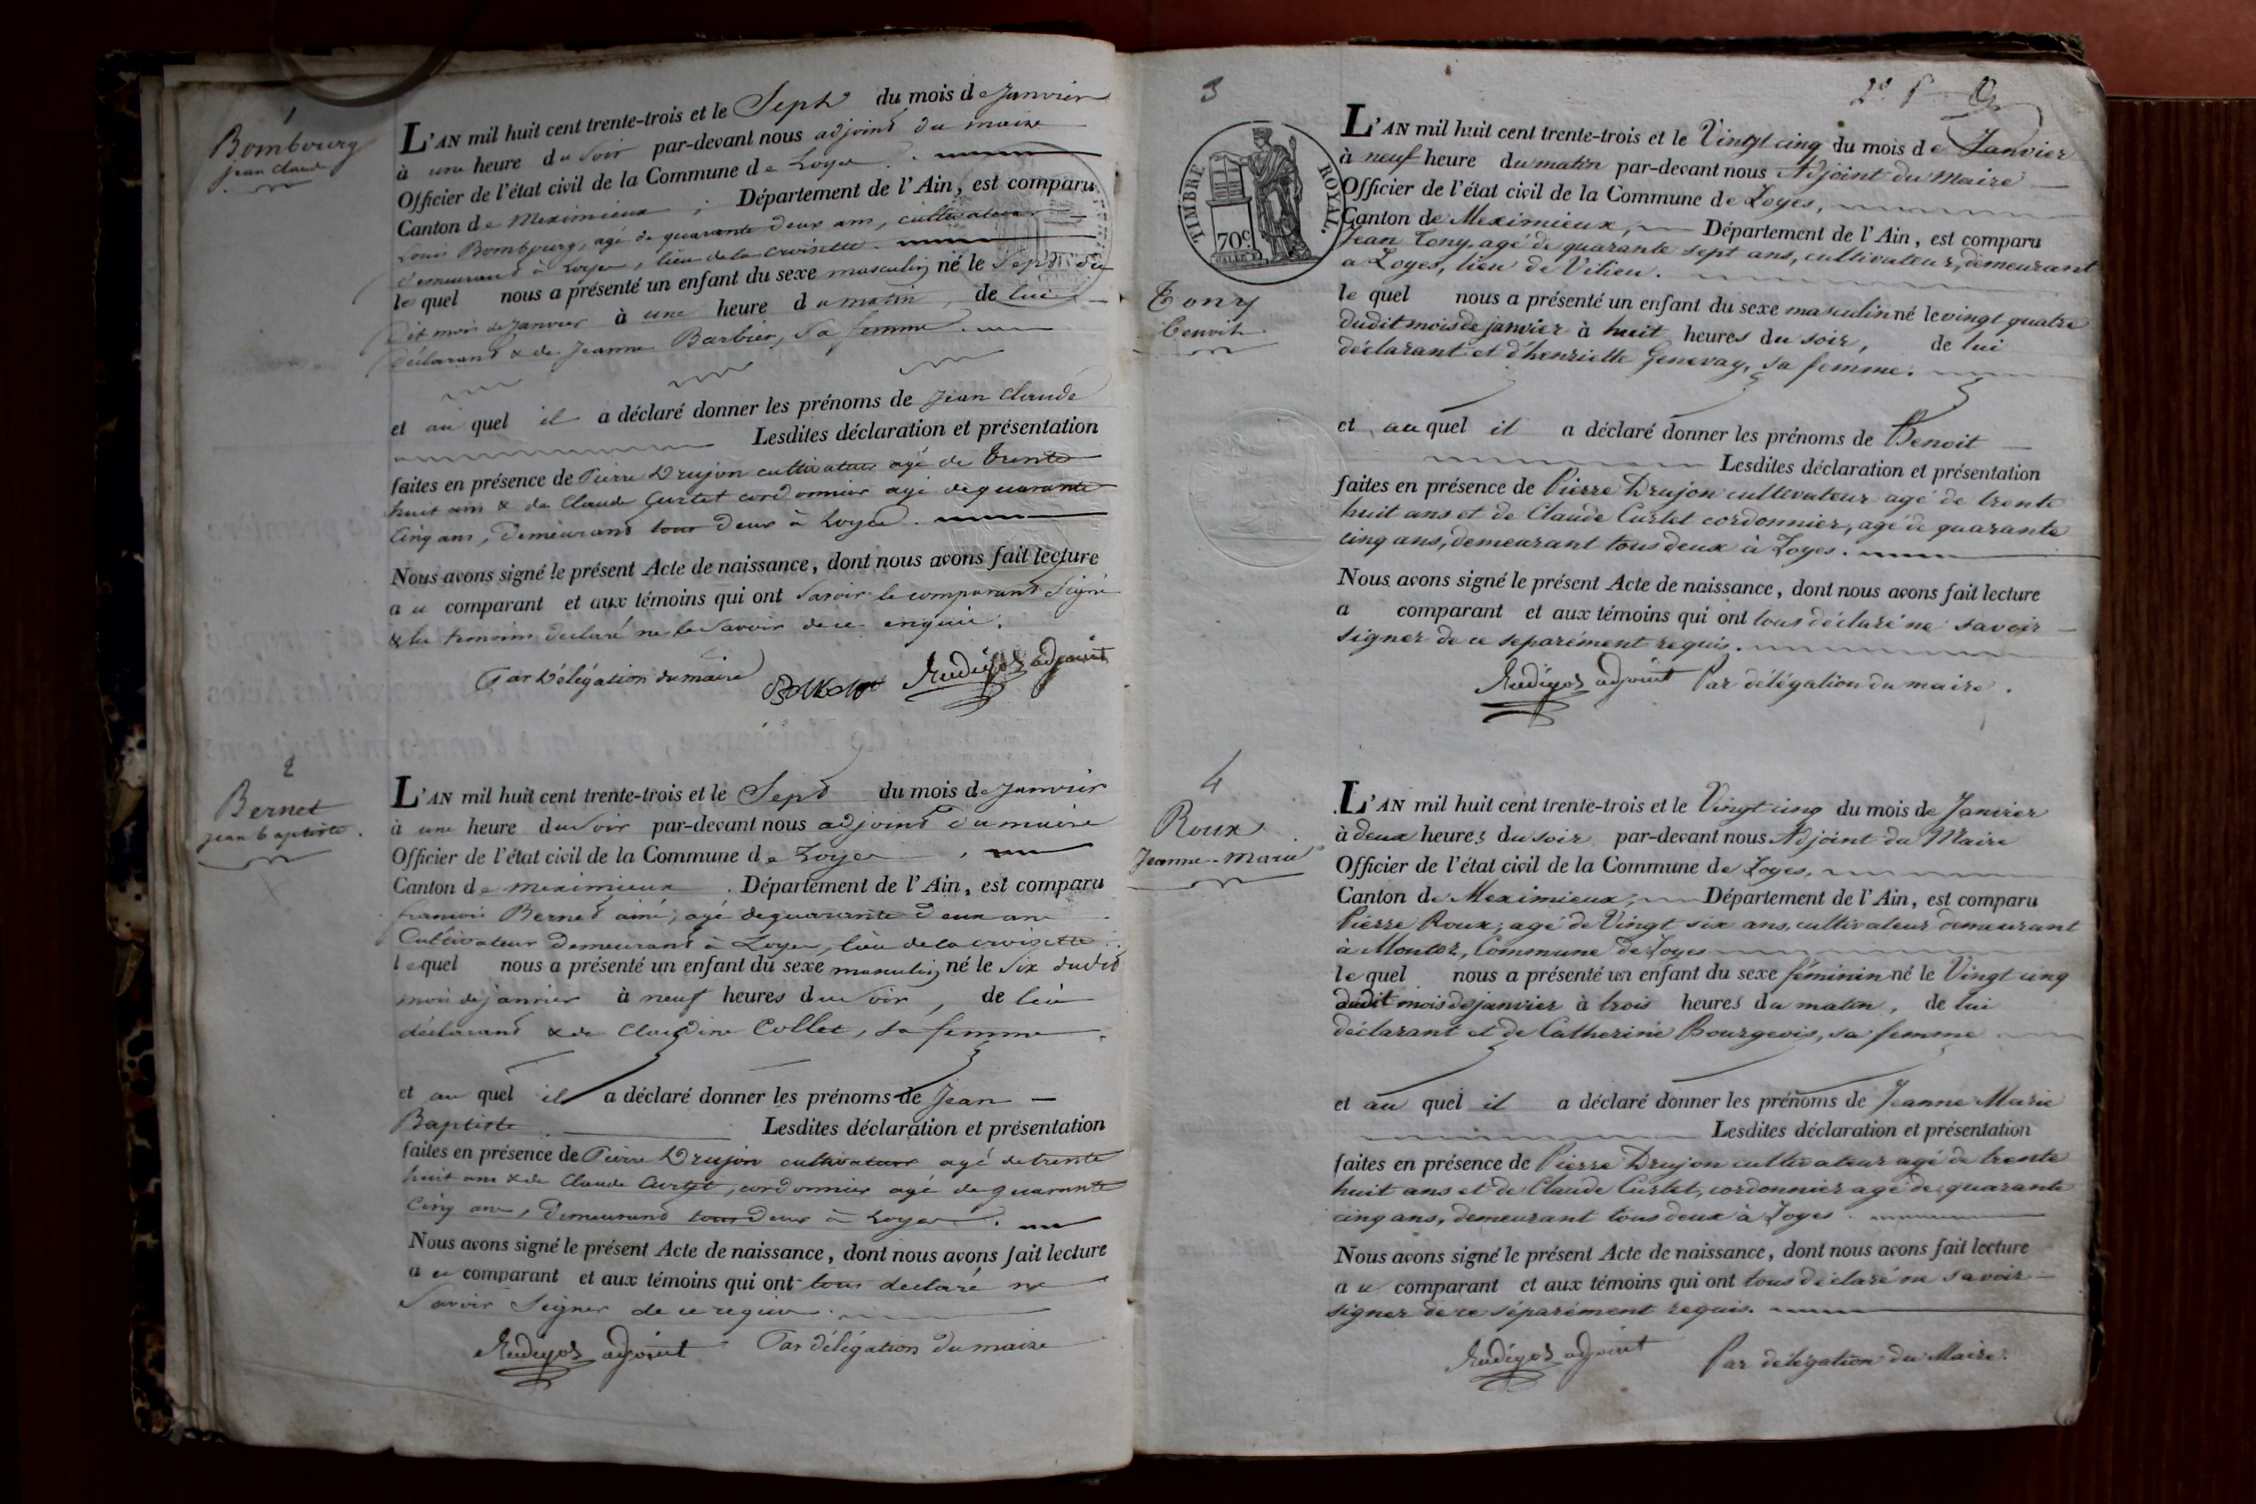 1
Bombourg
jean Claude
L'AN mil huit cent trente-trois et le Sept du mois de Janvier
à une heure du Soir par-devant nous adjoint du maire
Officier de l'état civil de la Commune de Loyes
Canton de Meximieux ; Département de l'Ain, est comparu
Louis Bombourg, agé de quarante deux ans, cultivateur
demeurant à Loyes, lieu de la Croisette.
lequel nous a présenté un enfant du sexe masculin né le Sept du
dit mois de Janvier à une heure du matin, de lui
déclarant & de Jeanne Barbier, Sa femme.
et au quel il a déclaré donner les prénoms de Jean Claude
Lesdites déclaration et présentation
faites en présence de Pierre Drujon cultivateur agé de trente
huit ans & de Claude Curtet cordonnier agé de quarante
Cinq ans, Demeurant tous deux à Loyes.
Nous avons signé le présent Acte de naissance, dont nous avons fait lecture
au comparant et aux témoins qui ont Savoir le comparant Signé
& les temoins declaré ne le Savoir de ce enquis.
Par Délégation du maire adjoint
2
Bernet
jean baptiste.
L'AN mil huit cent trente-trois et le Sept du mois de Janvier
à une heure du Soir par-devant nous adjoint du maire
Officier de l'état civil de la Commune de Loyes
Canton de meximieux. Département de l'Ain, est comparu
francois Bernet ainé, agé de quarante deux ans
Cultivateur demeurant à Loyes, lieu de la croisette.
lequel nous a présenté un enfant du sexe masculin né le Six dudit
mois de janvier à neuf heures du Soir, de lui
déclarant & de Claudine Collet, sa femme.
et au quel il a déclaré donner les prénoms de Jean
Baptiste. Lesdites déclaration et présentation
faites en présence de Pierre Drujon cultivateur agé de trente
huit ans & de Claude Curtet, cordonnier agé de quarante
Cinq ans, Demeurant tous deux à Loyes.
Nous avons signé le présent Acte de naissance, dont nous avons fait lecture
au comparant et aux témoins qui ont tous declaré ne
Savoir Signer de ce requis.
adjoint Par délégation du maire
3
TIMBRE ROYAL.
70c
Tony
Benoit
L'AN mil huit cent trente-trois et le Vingt cinq du mois de Janvier
à neuf heure du matin par-devant nous Adjoint du Maire
Officier de l'état civil de la Commune de Loyes,
Canton de Meximieux, Département de l'Ain, est comparu
Jean Tony, agé de quarante sept ans, cultivateur, demeurant
a Loyes, lieu de Vilieu.
lequel nous a présenté un enfant du sexe masculin né le vingt quatre
dudit mois de janvier à huit heures du soir, de lui
déclarant et d'henriette Genevay, sa femme.
et au quel il a déclaré donner les prénoms de Benoit
Lesdites déclaration et présentation
faites en présence de Pierre Drujon cultivateur agé de trente
huit ans et de Claude Curtet cordonnier, agé de quarante
cinq ans, demeurant tous deux à Loyes.
Nous avons signé le présent Acte de naissance, dont nous avons fait lecture
a comparant et aux témoins qui ont tous déclaré ne savoir
signer de ce separément requis.
adjoint Par délégation du maire.
4
Roux
Jeanne-Marie
L'AN mil huit cent trente-trois et le Vingt cinq du mois de Janvier
à deux heures du soir par-devant nous Adjoint du Maire
Officier de l'état civil de la Commune de Loyes,
Canton de Meximieux, Département de l'Ain, est comparu
Pierre Roux, agé de Vingt six ans, cultivateur demeurant
à Monter, Commune de Loyes
lequel nous a présenté un enfant du sexe féminin né le Vingt cinq
dudit mois de janvier à trois heures du matin, de lui
déclarant et de Catherine Bourgeois, sa femme
et au quel il a déclaré donner les prénoms de Jeanne Marie
Lesdites déclaration et présentation
faites en présence de Pierre Drujon cultivateur agé de trente
huit ans et de Claude Curtet, cordonnier agé de quarante
cinq ans, demeurant tous deux à Loyes.
Nous avons signé le présent Acte de naissance, dont nous avons fait lecture
au comparant et aux témoins qui ont tous déclaré ne savoir
signer de ce séparément requis.
adjoint Par délégation du Maire.